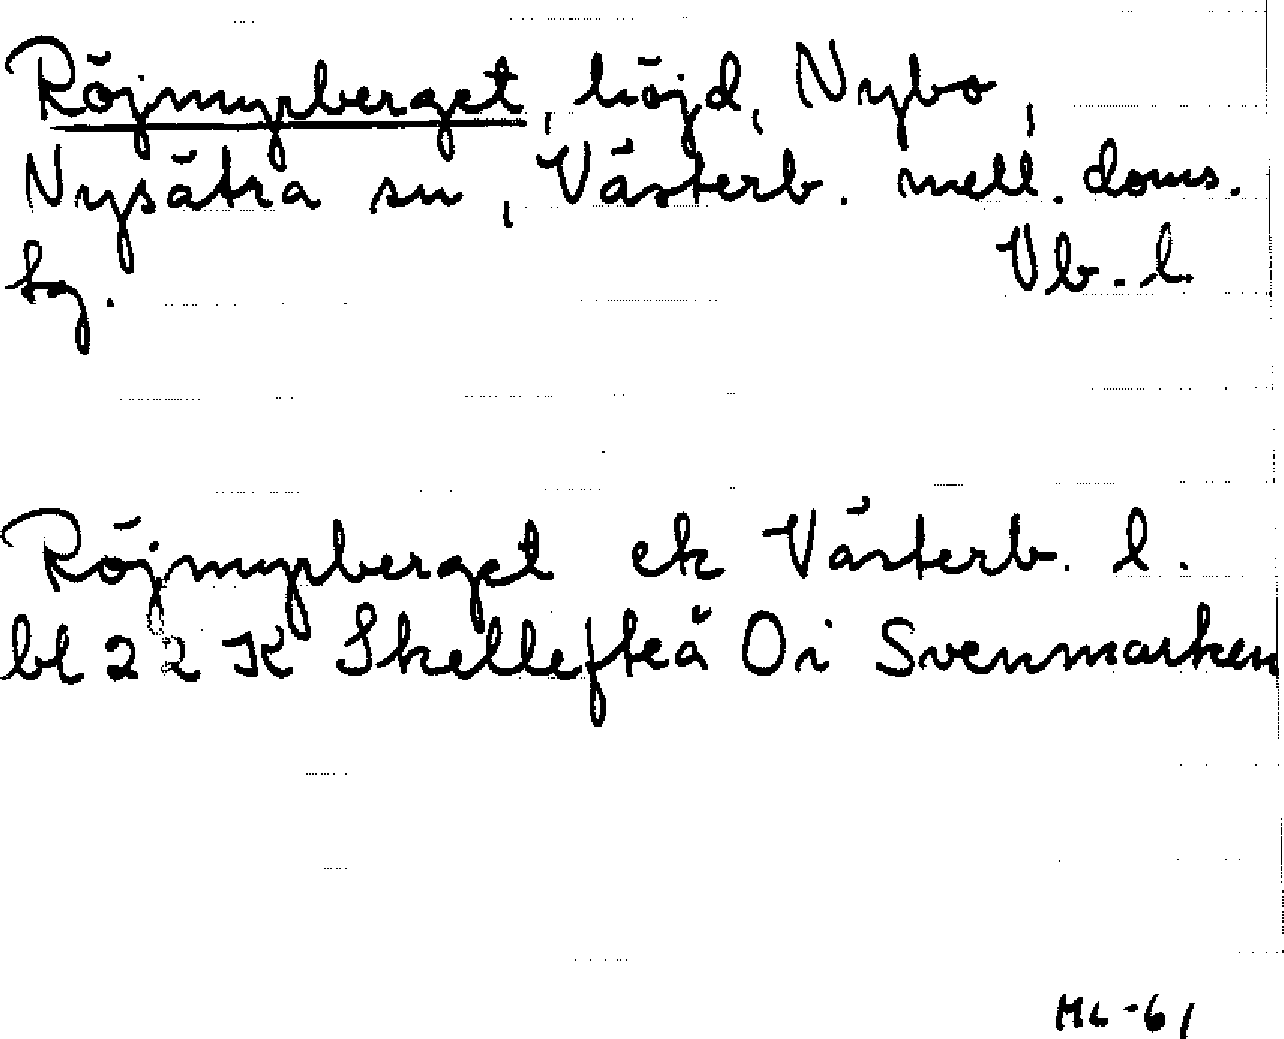 Röjmyrberget, höjd, Nybo,
Nysätra sn, Västerb. mell. doms.
sg. Vb. l.
Röjmyrberget ek Västerb. l.
bl 22 K Skellefteå Oi Svenmarken
ML -61